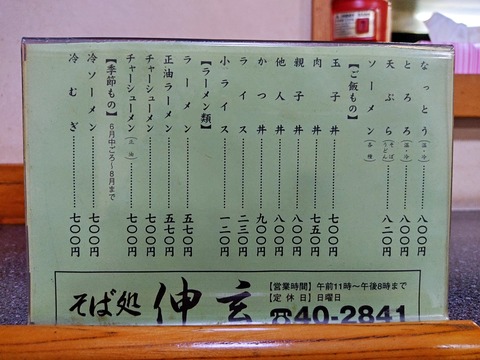 なっとう(温・冷) 八〇〇円
とろろ(温・冷) 八〇〇円
天ぷら(そばうどん) 八二〇円
ソーメン(各種)
【ご飯もの】
玉子丼 七〇〇円
肉丼 七五〇円
親子丼 八〇〇円
他人丼 八〇〇円
かつ丼 九〇〇円
ライス 二三〇円
小ライス 一二〇円
【ラーメン類】
ラーメン 五七〇円
正油ラーメン 五七〇円
チャーシューメン 七〇〇円
チャーシューメン(正油) 七〇〇円
【季節もの】6月中ごろ〜8月まで
冷ソーメン 七〇〇円
冷むぎ 七〇〇円
そば処 伸玄
【営業時間】午前11時〜午後8時まで
【定休日】日曜日
☎40-2841